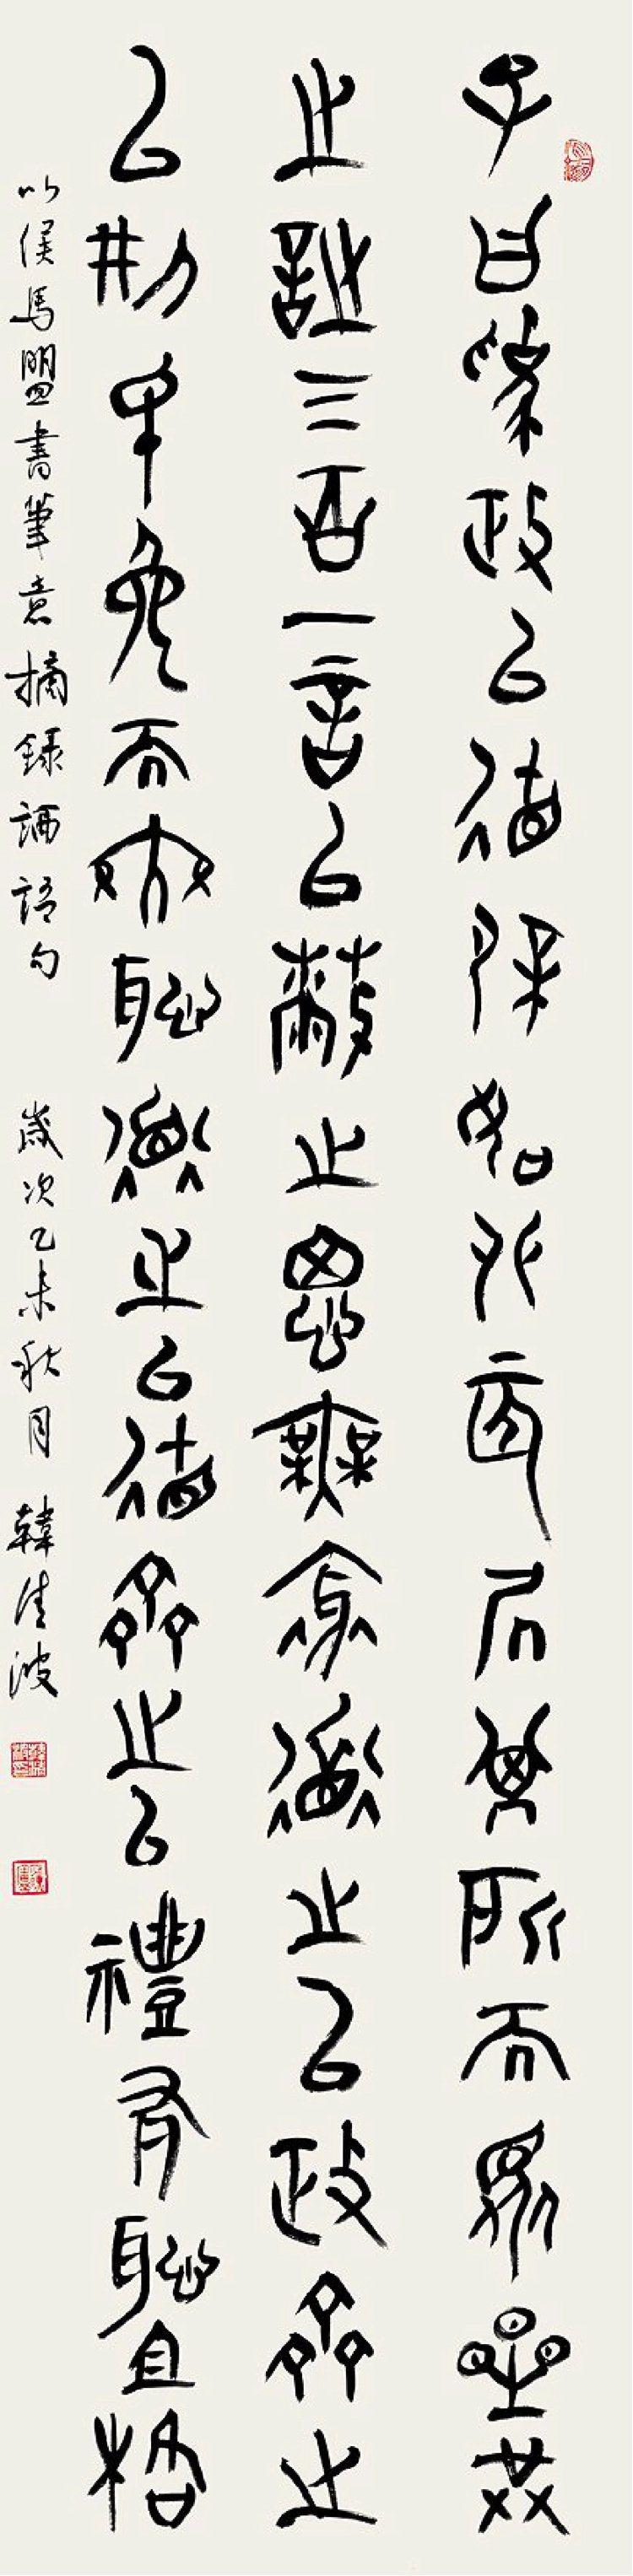 子曰為政以德譬如北辰居其所而眾星共
之詩三百一言以蔽之思無邪道之以政齊之
以刑民免而無恥道之以德齊之以禮有恥且格
以侯馬盟書筆意摘錄論語句 歲次乙未秋月 韓清波